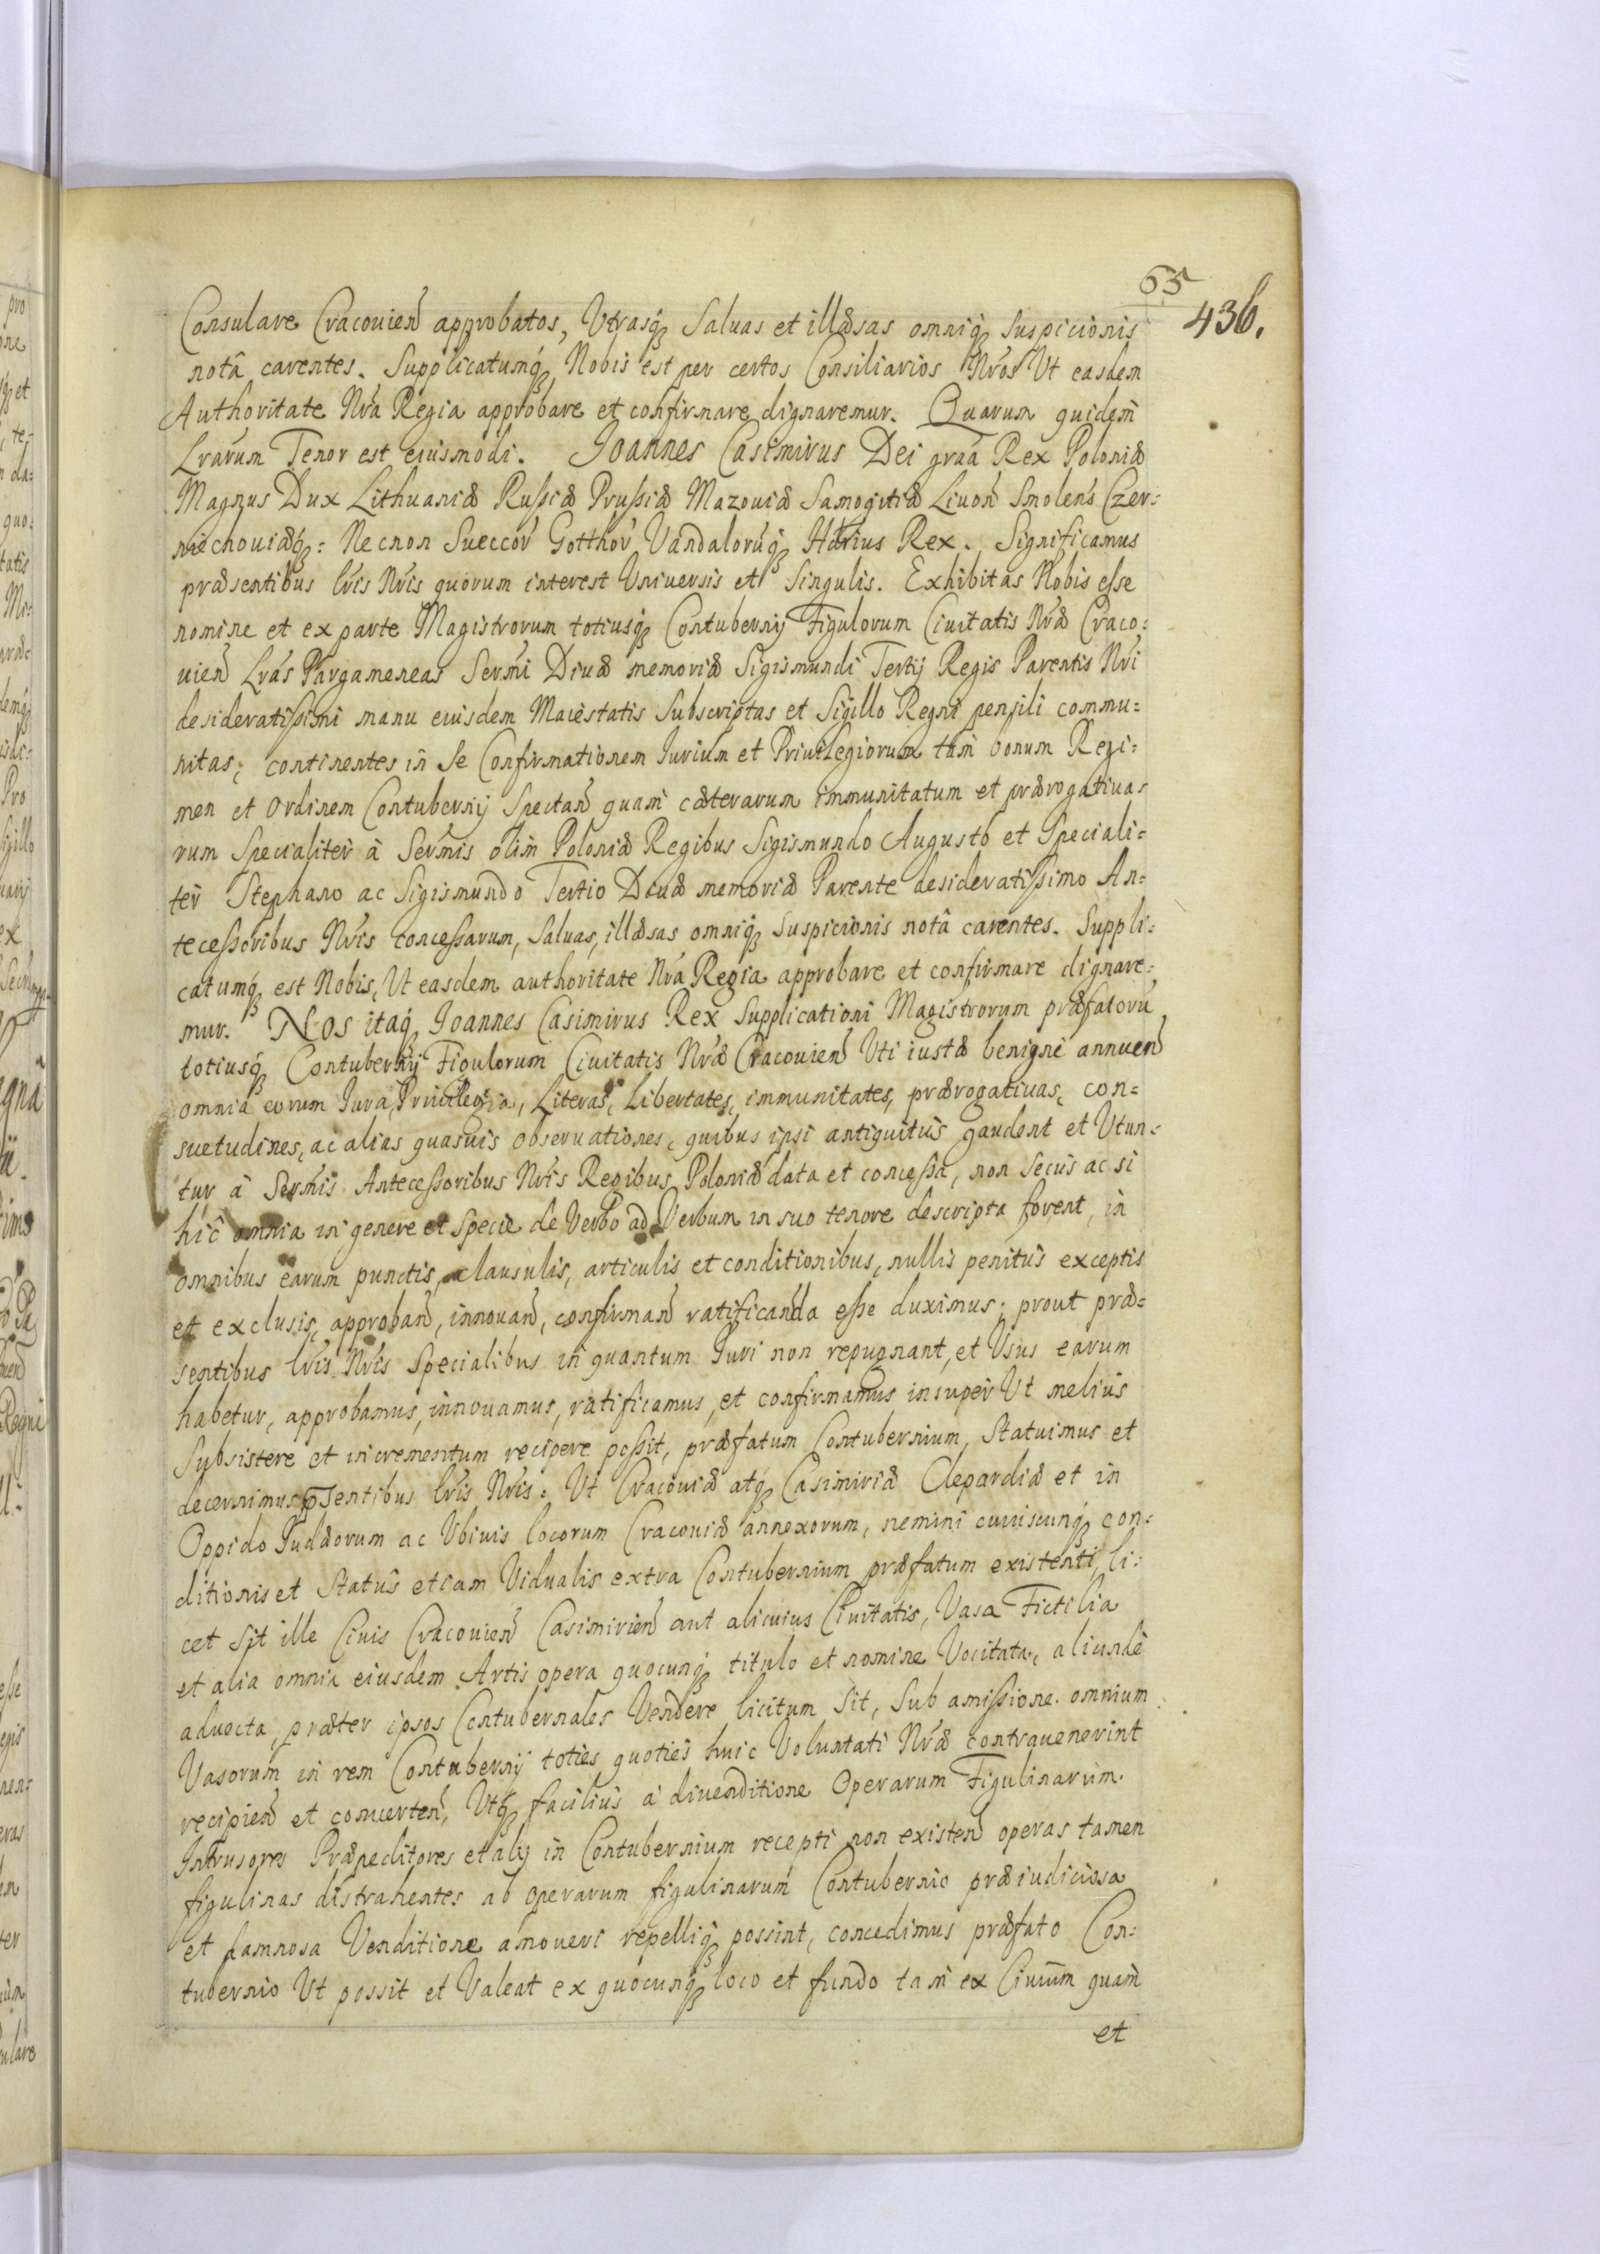 65
436.
Consulare Cracouien approbatos, Utrasq̃ Saluas et illæsas omniq̃ suspicionis
notâ carentes. Supplicatumq̃ Nobis est per certos Consiliarios Nr̃os Ut easdem
Authoritate Nr̃a Regia approbare et confirmare dignaremur. Quarum quidem
Lr̃arum Tenor est eiusmodi. Joannes Casimirus Dei gr̃aa Rex Poloniæ
Magnus Dux Lithuaniæ Russiæ Prussiæ Mazouiæ Samogitiæ Liuon̄ Smolens̄ Czer=
niechouiæq̃: Necnon Sueccor̃ Gotthor̃ Vandalorũq̃ Hærius Rex. Significamus
præsentibus lr̃is Nr̃is quorum interest Vniuersis et Singulis. Exhibitas Nobis esse
nomine et ex parte Magistrorum totiusq̃ Contubernij Figulorum Ciuitatis Nr̃æ Craco:
uien̄ Lr̃as Pargameneas Ser̃mi Diuæ memoriæ Sigismundi Tertij Regis Parentis Nr̃i
desideratissimi manu eiusdem Maiestatis Subscriptas et Sigillo Regni pensili commu=
nitas; continentes in Se Confirmationem Jurium et Priuilegiorum tam bonum Regi=
men et Ordinem Contubernij Spectan̄ quam cæterarum immunitatum et prærogatiua=
rum Specialiter à Ser̃mis olim Poloniæ Regibus Sigismundo Augusto et Speciali=
ter Stephano ac Sigismundo Tertio Diuæ memoriæ Parente desideratissimo An=
tecessoribus Nr̃is concessarum, Saluas, illæsas omniq̃ Suspicionis notâ carentes. Suppli=
catumq̃ est Nobis, Ut easdem authoritate Nr̃a Regia approbare et confirmare dignare=
mur. Nos itaq̃ Joannes Casimirus Rex Supplicationi Magistrorum præfatorũ
totiusq̃ Contubernij Figulorum Ciuitatis Nr̃æ Cracouien̄ Uti iustæ benignè annuen̄
omnia eorum Jura, Priuilegia, Literas, Libertates, immunitates, prærogatiuas, con=
suetudines, ac alias quasuis obseruationes, quibus ipsi antiquitus gaudent et Utun=
tur à Ser̃mis Antecessoribus Nr̃is Regibus Poloniæ data et concessa, non Secus ac si
hîc omnia in genere et Specie de Verbo ad Verbum in suo tenore descripta forent, in
omnibus earum punctis, clausulis, articulis et conditionibus, nullis penitus exceptis
et exclusis, approban̄, innouan̄, confirman̄ ratificanda esse duximus; prout præ=
sentibus lr̃is Nr̃is Specialibus in quantum Juri non repugnant, et Usus earum
habetur, approbamus, innouamus, ratificamus, et confirmamus insuper Ut melius
Subsistere et incrementum recipere possit, præfatum Contubernium, Statuimus et
decernimus p̃sentibus lr̃is Nr̃is. Ut Cracouiæ atq̃ Casimiriæ Clepardiæ et in
Oppido Judæorum ac Ubiuis locorum Cracouiæ annexorum, nemini cuiuscunq̃ con=
ditionis et Statûs etiam Vidualis extra Contubernium præfatum existenti, li=
cet Sit ille Ciuis Cracouien̄ Casimirien̄ aut alicuius Ciuitatis, Vasa Fictilia
et alia omnia eiusdem Artis opera quocunq̃ titulo et nomine Vocitata, aliunde
aduecta, præter ipsos Contubernales Vendere licitum Sit, Sub amissione omnium
Vasorum in rem Contubernij toties quoties huic Voluntati Nr̃æ contrauenerint
recipien̄ et conuerten̄, Utq̃ facilius à diuenditione Operarum Figulinarum
Intrusores Præpeditores et alij in Contubernium recepti non existen̄ operas tamen
figulinas distrahentes ab operarum figulinarum Contubernio præiudiciosa
et damnosa Venditione amoueri repelliq̃ possint, concedimus præfato Con=
tubernio Ut possit et Valeat ex quocunq̃ loco et fundo tam ex Ciuium quam
et